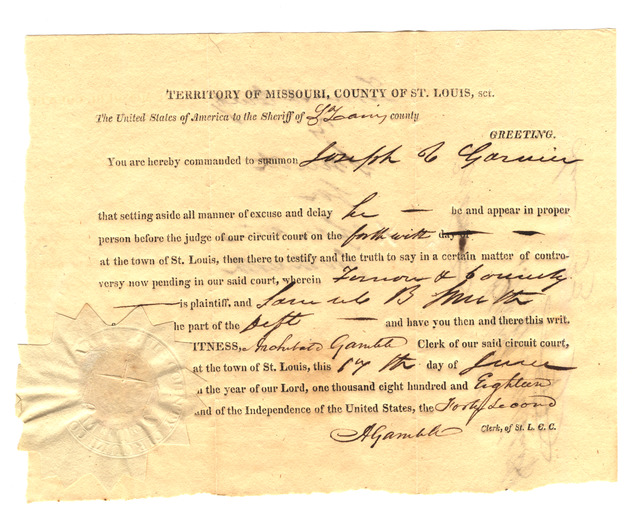 TERRITORY OF MISSOURI, COUNTY OF ST. LOUIS, sct.
The United States of America to the Sheriff of St Louis county
GREETING.
You are hereby commanded to summon Joseph C Garnier
that setting aside all manner of excuse and delay he — be and appear in proper
person before the judge of our circuit court on the forthwith day of
at the town of St. Louis, then there to testify and the truth to say in a certain matter of contro-
versy now pending in our said court, wherein
— is plaintiff, and B Smith
he part of the Deft — and have you then and there this writ.
ITNESS, Archibald Gamble Clerk of our said circuit court,
at the town of St. Louis, this 17th day of June
n the year of our Lord, one thousand eight hundred and Eighteen
and of the Independence of the United States, the Forty Second
A Gamble Clerk, of St. L. C. C.